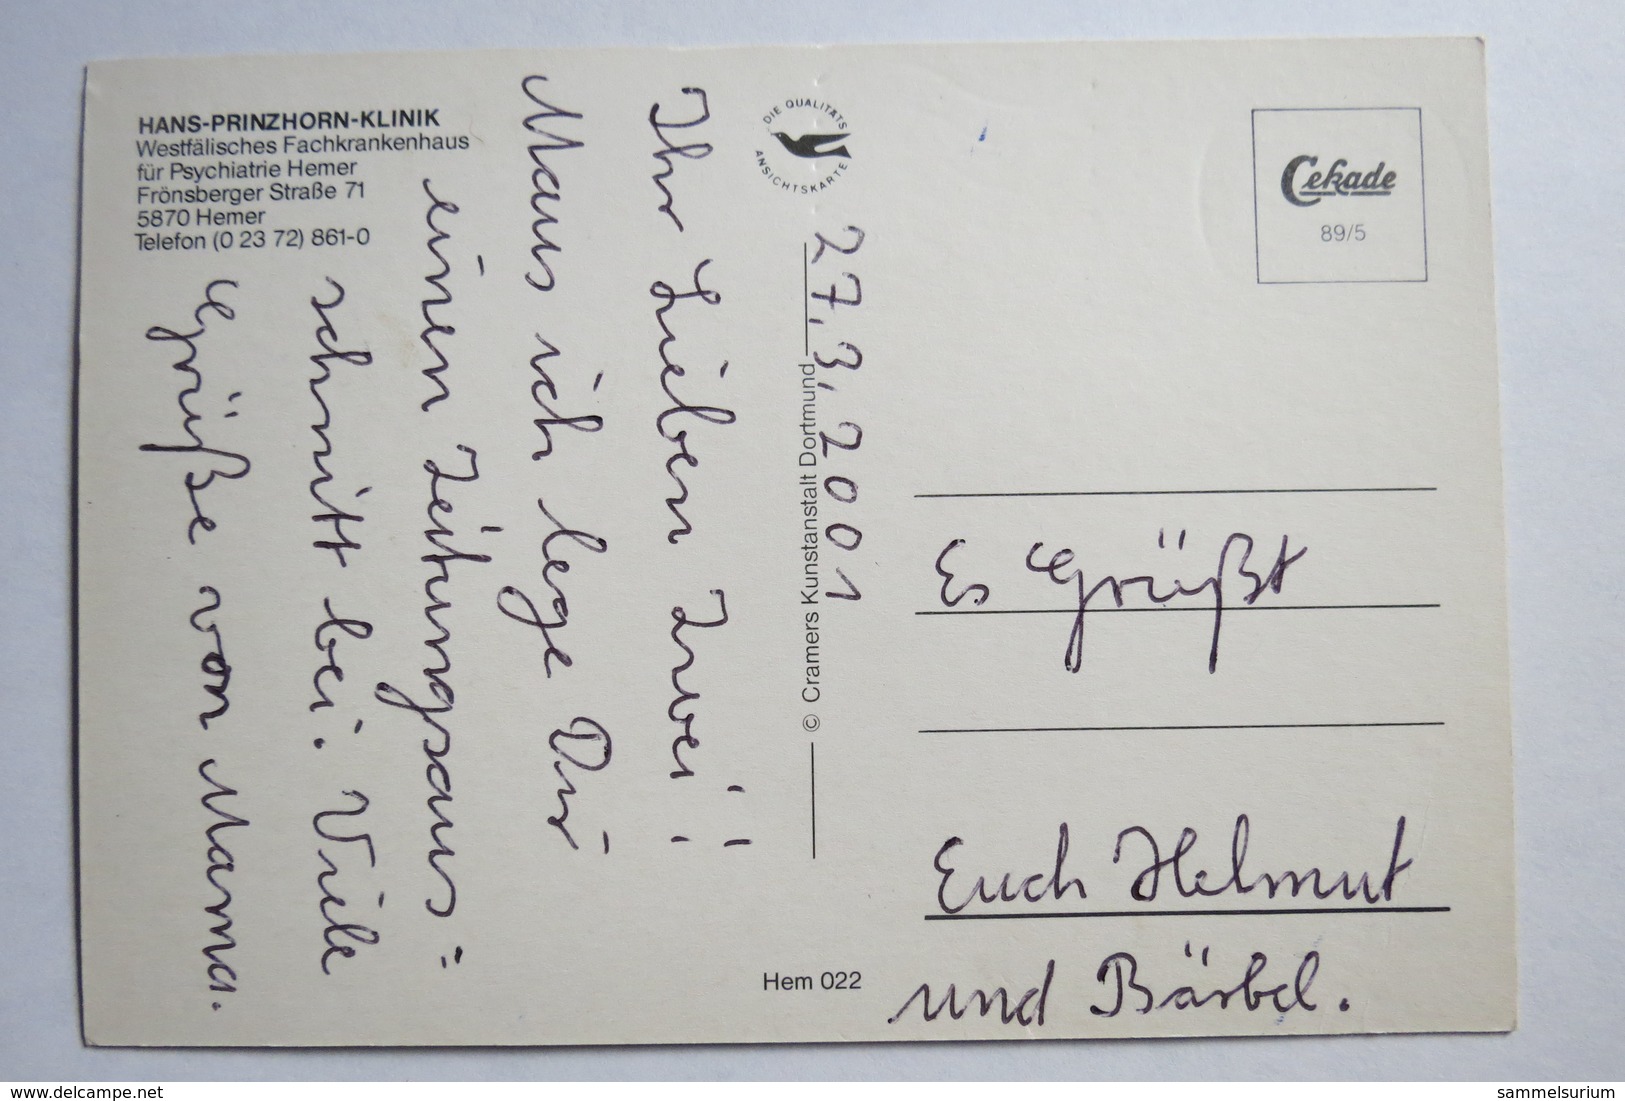 HANS-PRINZHORN-KLINIK
Westfälisches Fachkrankenhaus
für Psychiatrie Hemer
Frönsberger Straße 71
5870 Hemer
Telefon (0 23 72) 861-0
DIE QUALITÄTS
ANSICHTSKARTE
Cekade
89/5
27.3.2001
Ihr Lieben Zwei!
Maus ich lege Dir
einen Zeitungsaus=
schnitt bei. Viele
Grüße von Mama.
© Cramers Kunstanstalt Dortmund
Es Grüßt
Euch Helmut
und Bärbel.
Hem 022
sammelsurium